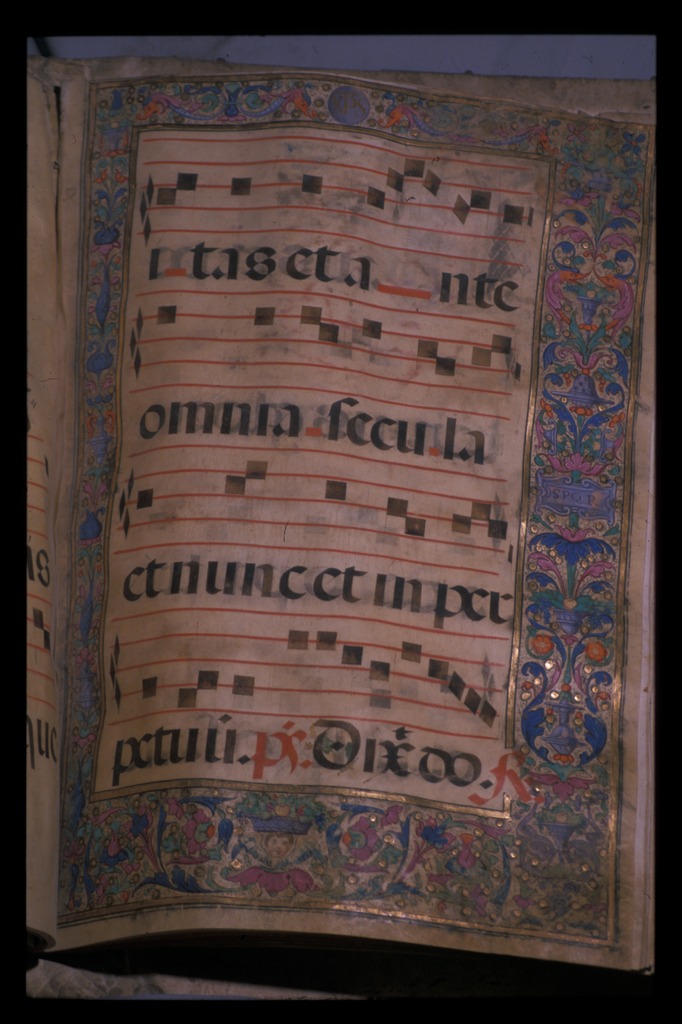 itas et a nte
omnia secula
et nunc et in per
petuu. ps. Dixit do. R.
SPQR
is
que